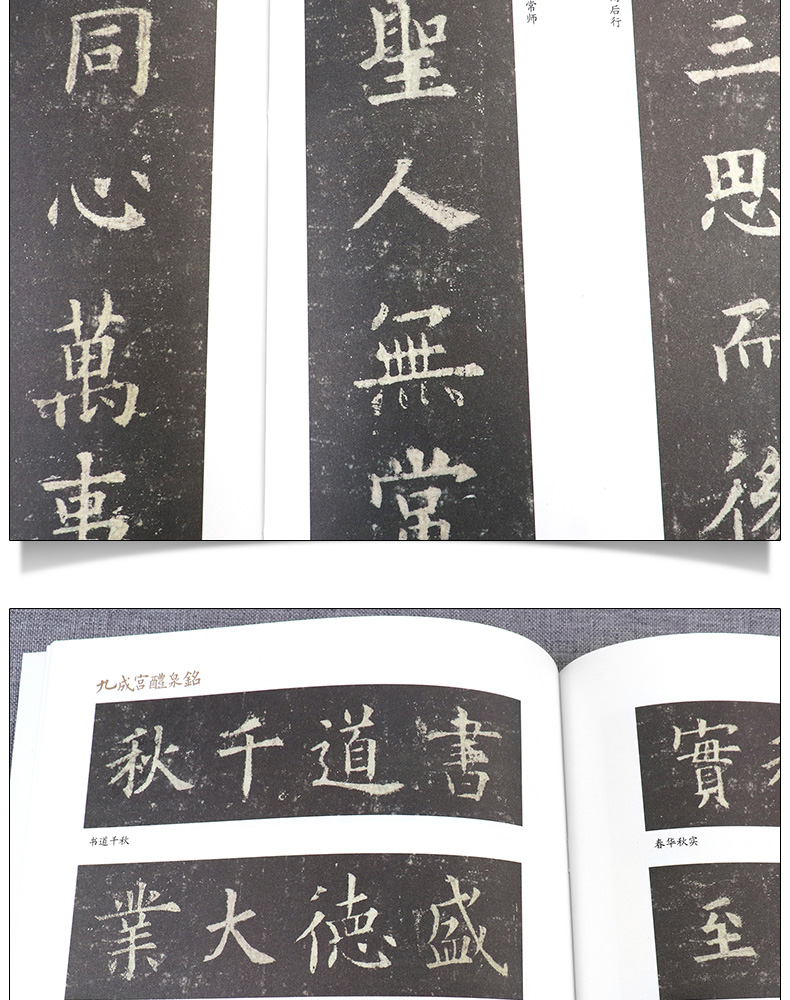 三思而後
后行
常师
聖人無常
同心萬事
九成宮醴泉銘
書道千秋
书道千秋
盛德大業
實
春华秋实
至